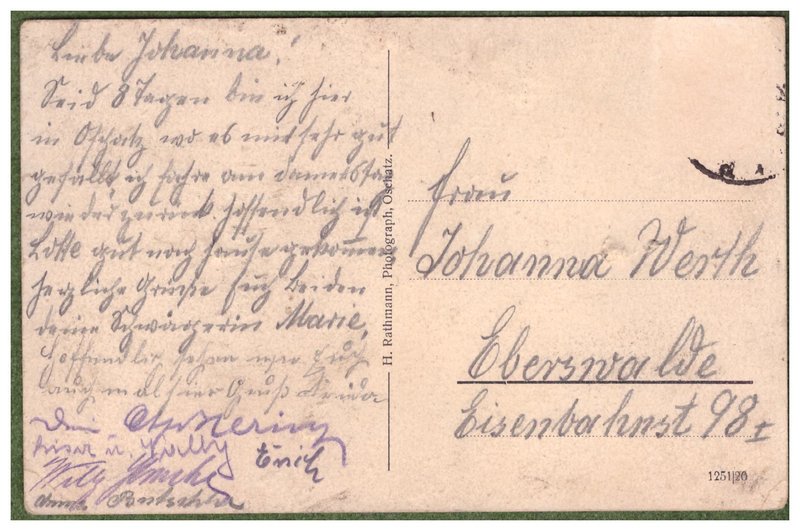 Liebe Johanna!
Seid 8 Tagen bin ich hier
in Oschatz wo es mir sehr gut
gefällt, ich fahre am
wieder zurück. Hoffendlich ist
Lotte gut nach Hause gekommen
Herzliche Grüße Euch beiden
deine Schwägerin Marie,
Hoffendlich sehen wir Euch
auch mal hier Gruß Frieda
Dein
u.
Willy Erich
Anna
H. Rathmann, Photograph, Oschatz.
Frau
Johanna Werth
Eberswalde
Eisenbahnst 98 I
1251|26